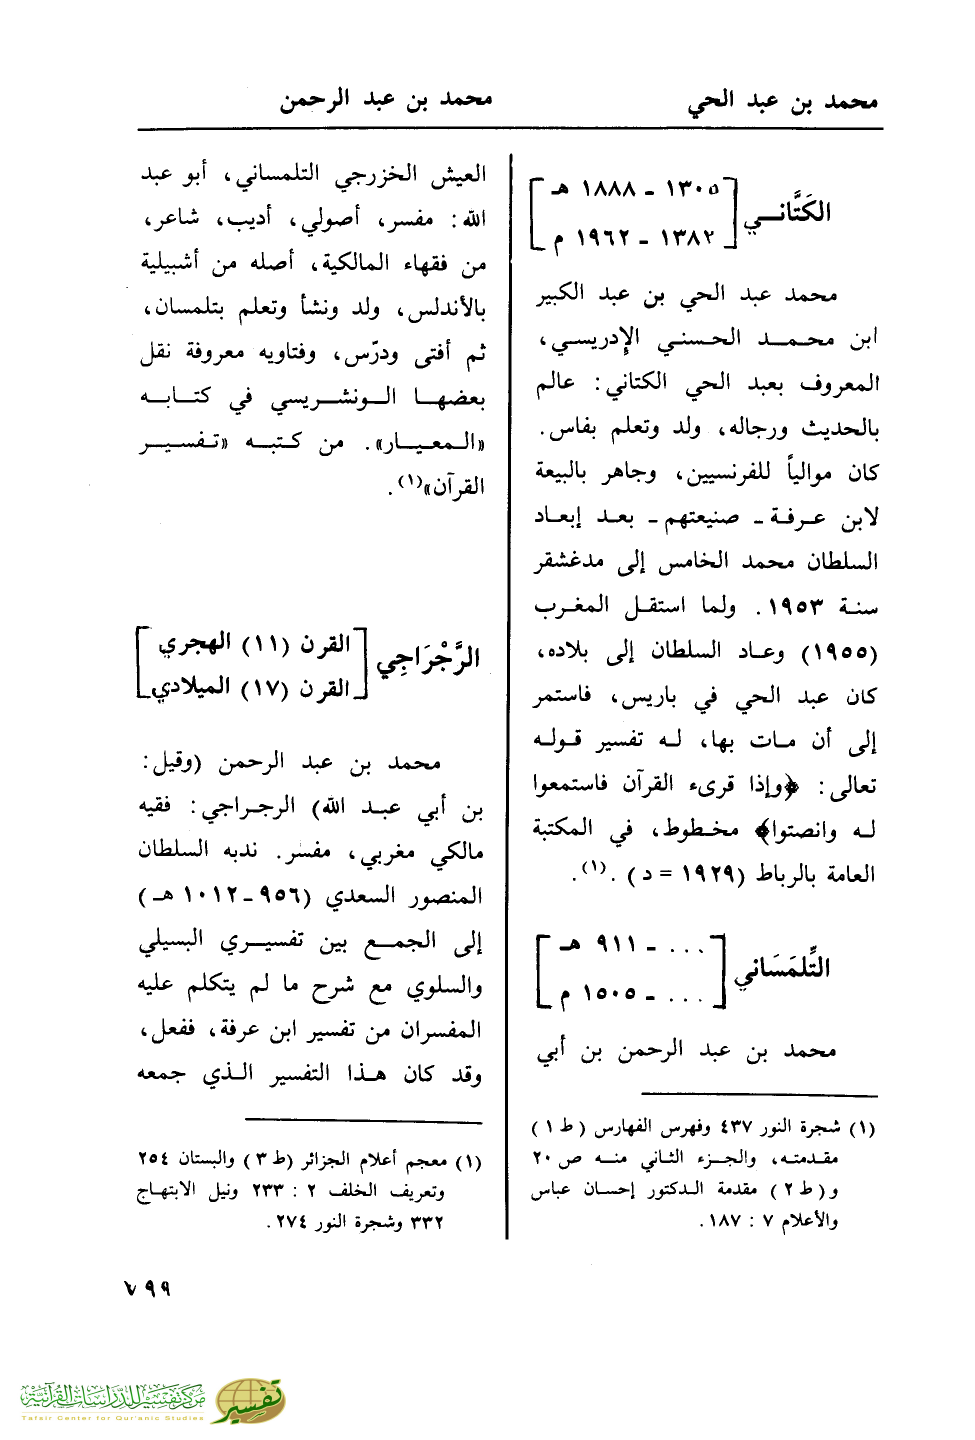 محمد بن عبد الحي
محمد بن عبد الرحمن
الكَتَّانـــي
١٣٠٥ ـ ١٨٨٨ هـ
١٣٨٢ ـ ١٩٦٢ م
محمد عبد الحي بن عبد الكبير
ابن محمـــد الحسنـي الإدريسـي،
المعروف بعبد الحي الكتاني: عالم
بالحديث ورجاله، ولد وتعلم بفاس.
كان موالياً للفرنسيين، وجاهر بالبيعة
لابن عـرفـة ـ صنيعتهم ـ بعـد إبعاد
السلطان محمد الخامس إلى مدغشقر
سنـة ١٩٥٣. ولما استقـل المغـرب
(١٩٥٥) وعـاد السلطان إلى بلاده،
كان عبد الحي في باريس، فاستمر
إلى أن مـات بها، لـه تفسير قـولـه
تعالى: ﴿وإذا قرىء القرآن فاستمعوا
لـه وانصتوا﴾ مخـطوط، في المكتبة
العامة بالرباط (١٩٢٩ = د) .(١).
التِّلمَسَاني
... ـ ٩١١ هـ
... ـ ١٥٠٥ م
محمد بن عبد الرحمن بن أبي
(١) شجرة النور ٤٣٧ وفهرس الفهارس (ط ١)
مقـدمتـه، والجـزء الثاني منـه ص ٢٠
و (ط ٢) مقدمة الـدكتور إحسان عباس
والأعلام ٧ : ١٨٧.
العيش الخزرجي التلمساني، أبو عبد
الله: مفسر، أصولي، أديب، شاعر،
من فقهاء المالكية، أصله من أشبيلية
بالأندلس، ولد ونشأ وتعلم بتلمسان،
ثم أفتى ودرّس، وفتاويه معروفة نقل
بعضهـا الـونشـريسي في كتـابـه
«المعيـار». من كتبـه «تـفسيـر
القرآن»(١).
الرَّجْرَاجِي
القرن (١١) الهجري
القرن (١٧) الميلادي
محمـد بن عبد الرحمن (وقيل:
بن أبي عبـد الله) الرجـراجي: فقيه
مالكي مغربي، مفسر. ندبه السلطان
المنصور السعدي (٩٥٦ ـ ١٠١٢ هـ)
إلى الجمـع بين تفسيـري البسيلي
والسلوي مع شرح ما لم يتكلم عليه
المفسران من تفسير ابن عرفة، ففعل،
وقد كان هـذا التفسير الـذي جمعه
(١) معجم أعلام الجزائر (ط ٣) والبستان ٢٥٤
وتعريف الخلف ٢ : ٢٣٣ ونيل الابتهاج
٣٣٢ وشجرة النور ٢٧٤.
٧٩٩
مركز تفسير للدراسات القرآنية
Tafsir Center for Qur'anic Studies
تفسير